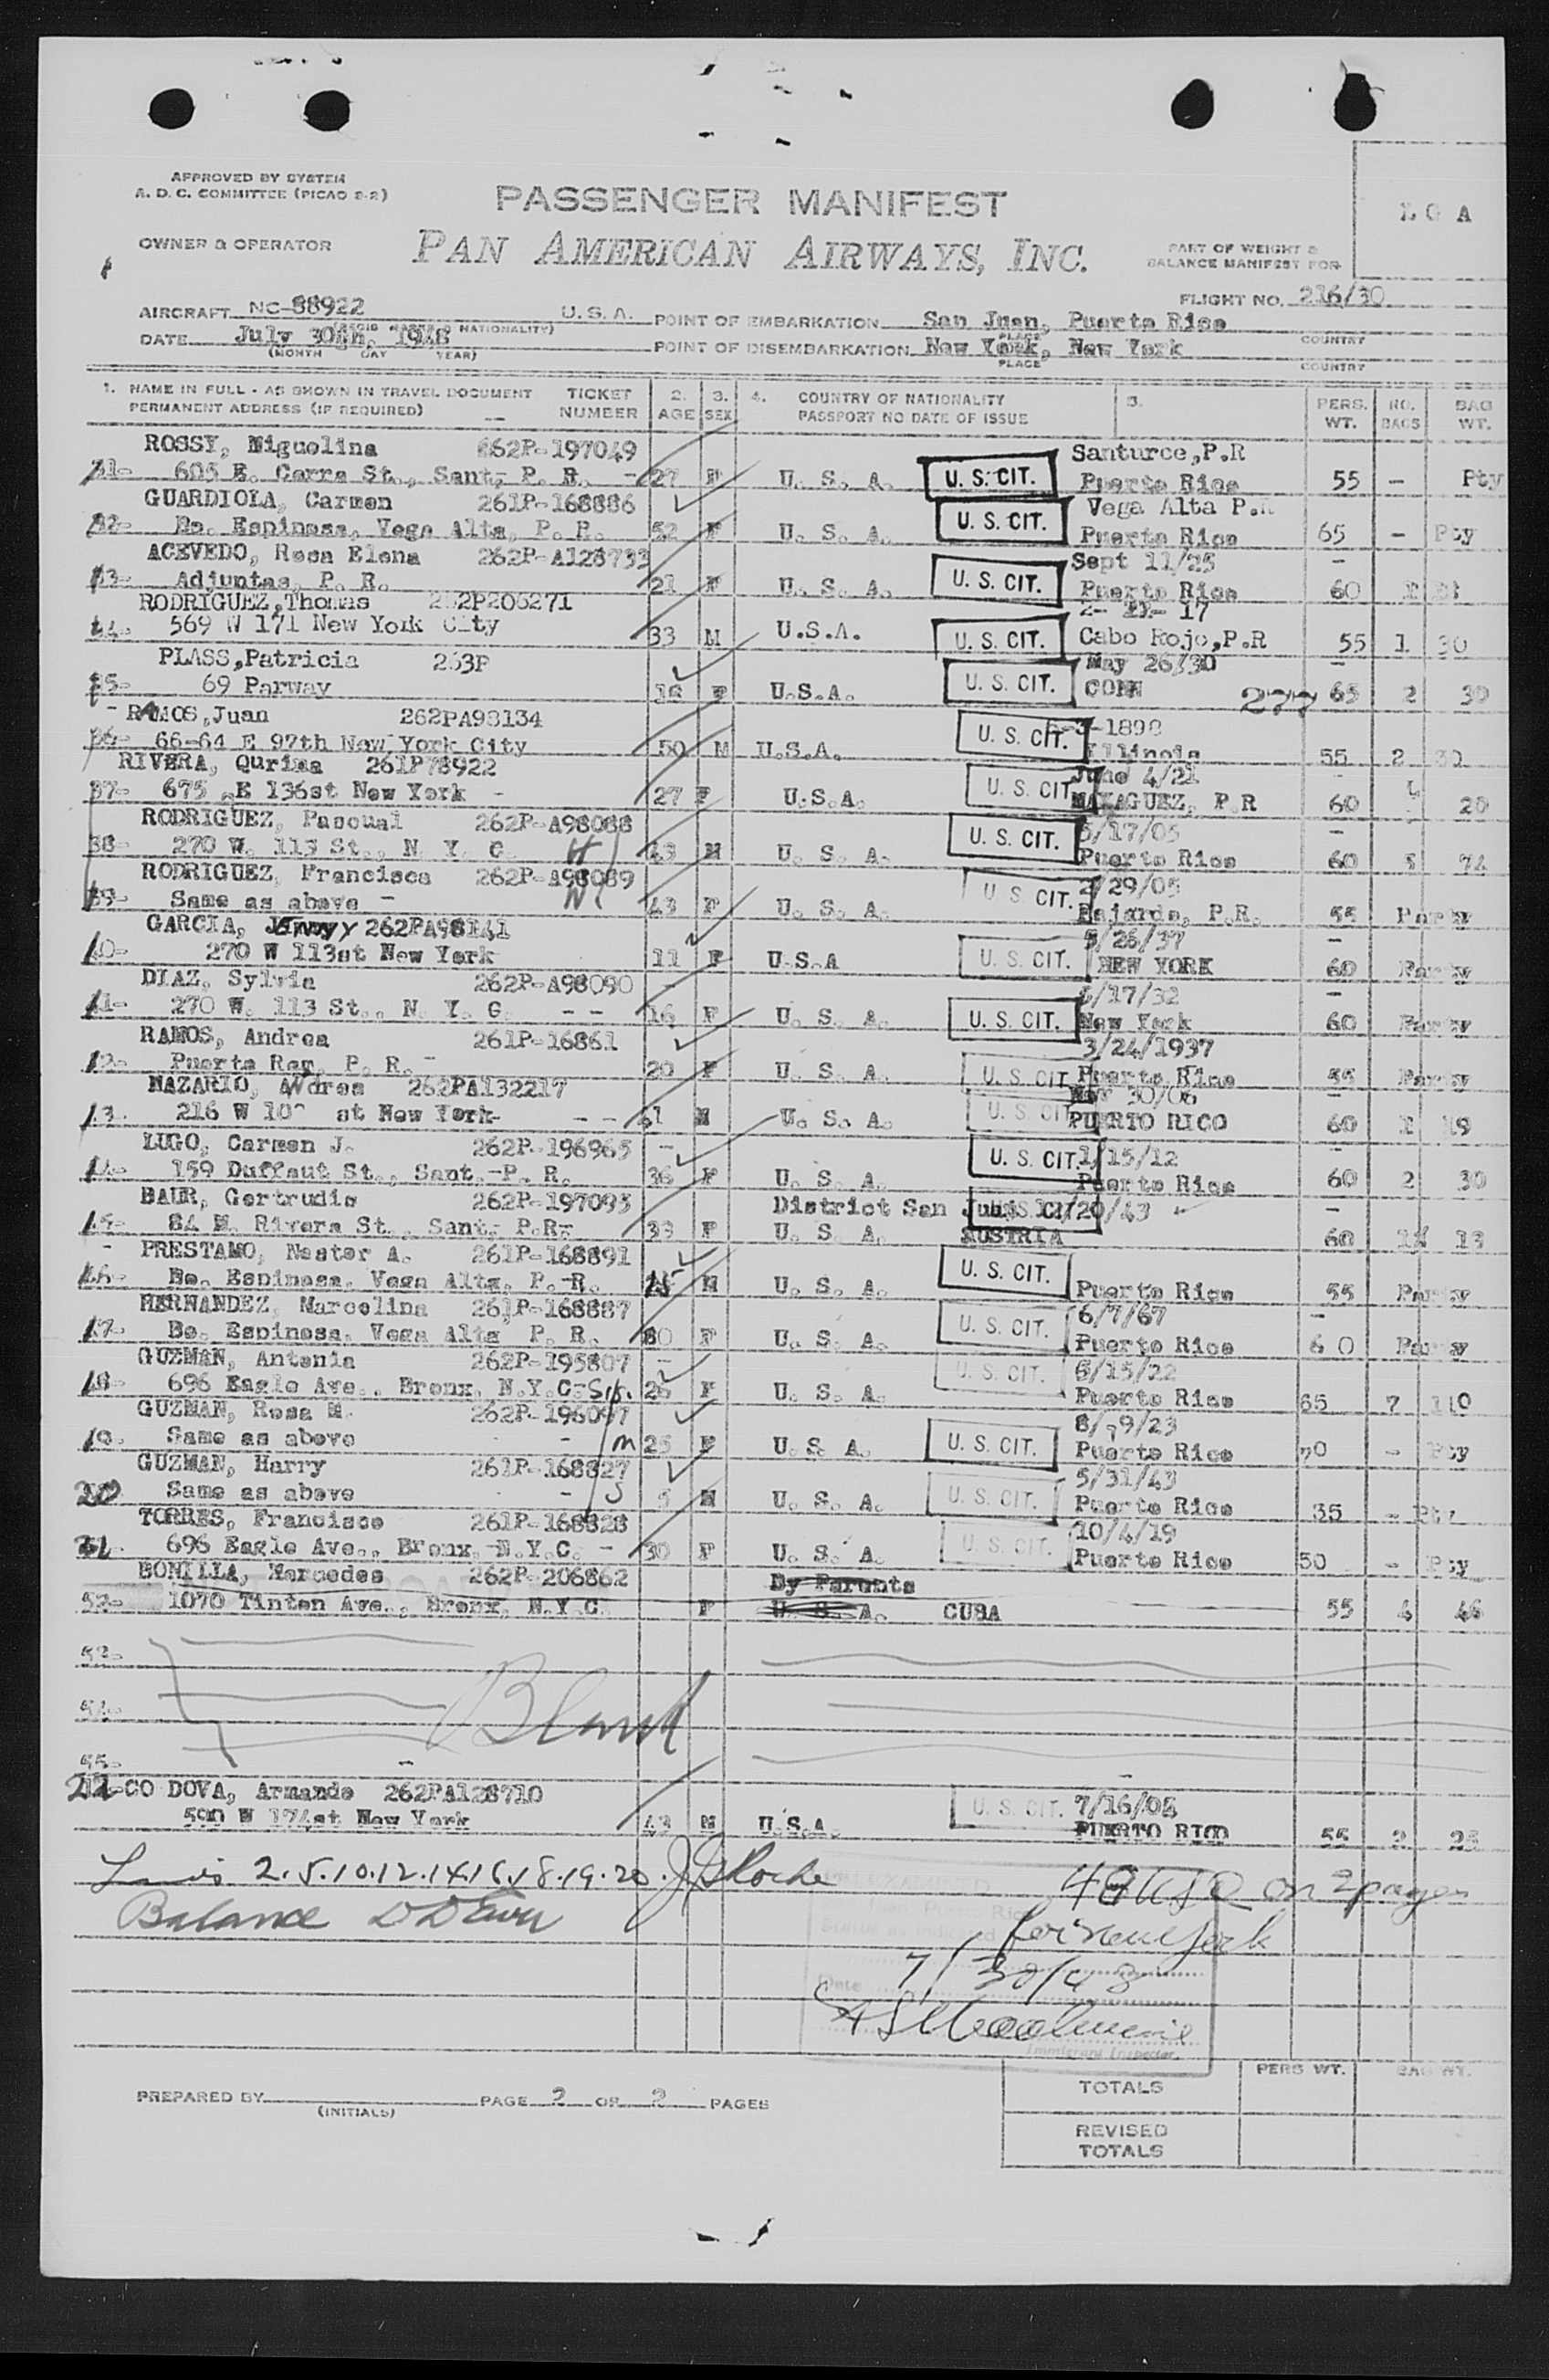 APPROVED BY SYSTEM
A. D. C. COMMITTEE (PICAO 8-2)
PASSENGER MANIFEST
L G A
OWNER & OPERATOR
PAN AMERICAN AIRWAYS, INC.
PART OF WEIGHT &
BALANCE MANIFEST FOR
FLIGHT NO. 216/30
AIRCRAFT NC-88922 U. S. A.
POINT OF EMBARKATION San Juan, Puerto Rico
DATE July 30th, 1948
(MONTH DAY YEAR)
PLACE COUNTRY
POINT OF DISEMBARKATION New York, New York
PLACE COUNTRY
1. NAME IN FULL - AS SHOWN IN TRAVEL DOCUMENT TICKET 2. 3. 4. COUNTRY OF NATIONALITY 5. PERS. NO. BAG
PERMANENT ADDRESS (IF REQUIRED) NUMBER AGE SEX PASSPORT NO DATE OF ISSUE WT. BAGS WT.
ROSSY, Miguelina 262P-197049 Santurce, P.R
605 E. Cerra St., Sant, P. R. - 27 F U. S. A. U. S. CIT. Puerto Rico 55 - Pty
GUARDIOLA, Carmen 261P-168886 Vega Alta P.R
Bo. Espinosa, Vega Alta, P. R. 52 F U. S. A. U. S. CIT. Puerto Rico 65 - Pty
ACEVEDO, Rosa Elena 262P-A128733 Sept 11/25 -
Adjuntas, P. R. 21 F U. S. A. U. S. CIT. Puerto Rico 60
RODRIGUEZ, Thomas 262P206271 17
569 W 171 New York City 33 M U.S.A. U. S. CIT. Cabo Rojo, P.R 55 1 30
PLASS, Patricia 263P May 26/30 -
69 Parway 18 F U.S.A. U. S. CIT. CONN 277 65 2 30
RAMOS, Juan 262PA98134 -1898
66-64 E 97th New York City 50 M U.S.A. U. S. CIT. Illinois 55 2 30
RIVERA, Qurima 261P78922 June 4/21
675 E 136st New York - 27 F U.S.A. U. S. CIT. MAYAGUEZ, P.R 60 20
RODRIGUEZ, Pascual 262P-A98088 5/17/05 -
270 W. 113 St., N. Y. C. H 43 M U. S. A. U. S. CIT. Puerto Rico 60 5 74
RODRIGUEZ, Francisca 262P-A98089 2/29/05
Same as above - 43 F U. S. A. U. S. CIT. Fajardo, P.R. 55 Party
GARCIA, Jenny 262PA98141 5/26/37 -
270 W 113st New York 11 F U.S.A U. S. CIT. NEW YORK 60 Party
DIAZ, Sylvia 262P-A98090 6/17/32 -
270 W. 113 St., N. Y. C. - - 16 F U. S. A. U. S. CIT. New York 60 Party
RAMOS, Andrea 261P-16861 3/24/1937
Puerto Rey, P. R. - 20 F U. S. A. U. S. CIT. Puerto Rico 55 Party
NAZARIO, Andres 262PA132217 Nov 30/06 -
216 W 10 st New York - - 41 M U. S. A. U. S. CIT. PUERTO RICO 60 1 19
LUGO, Carmen J. 262P-196965 - 1/15/12
159 Duffaut St., Sant.-P. R. 36 F U. S. A. U. S. CIT. Puerto Rico 60 2 30
BAUR, Gertrudis 262P-197093 District San Juan 12/20/43 -
84 M. Rivera St., Sant, P.R. 33 F U. S. A. AUSTRIA 60 13
PRESTAMO, Nestor A. 261P-168891
Bo. Espinosa, Vega Alta, P.-R. 15 M U. S. A. U. S. CIT. Puerto Rico 55 Party
HERNANDEZ, Marcelina 261P-168887 6/7/67 -
Bo. Espinosa, Vega Alta, P. R. 80 F U. S. A. U. S. CIT. Puerto Rico 60 Party
GUZMAN, Antonia 262P-195807 - 6/15/22
696 Eagle Ave., Bronx, N.Y.C. Sis. 26 F U. S. A. U. S. CIT. Puerto Rico 65 7 110
GUZMAN, Rosa M. 262P-196097 8/9/23
Same as above - M 25 F U. S. A. U. S. CIT. Puerto Rico 70 - Pty
GUZMAN, Harry 261P-168827 5/31/43
20 Same as above - S 5 M U. S. A. U. S. CIT. Puerto Rico 35 - Pty
TORRES, Francisco 261P-168828 10/4/19
21 696 Eagle Ave., Bronx,-N.Y.C. - 30 F U. S. A. U. S. CIT. Puerto Rico 50 - Pty
BONILLA, Mercedes 262P-206862 By Parents
52- 1070 Tinton Ave., Bronx, N.Y.C. F U. S. A. CUBA 55 4 46
53-
54- Blank
55-
22 CO DOVA, Armando 262PA128710 7/16/05
590 W 174st New York 43 M U.S.A. U. S. CIT. PUERTO RICO 55 2 25
2.5.10.12.14.16.18.19.20.
on 2 pages
Balance
for New York
Date 7/30/48
Immigrant Inspector.
PREPARED BY
(INITIALS)
PAGE 2 OF 2 PAGES
PERS WT. BAG WT.
TOTALS
REVISED
TOTALS